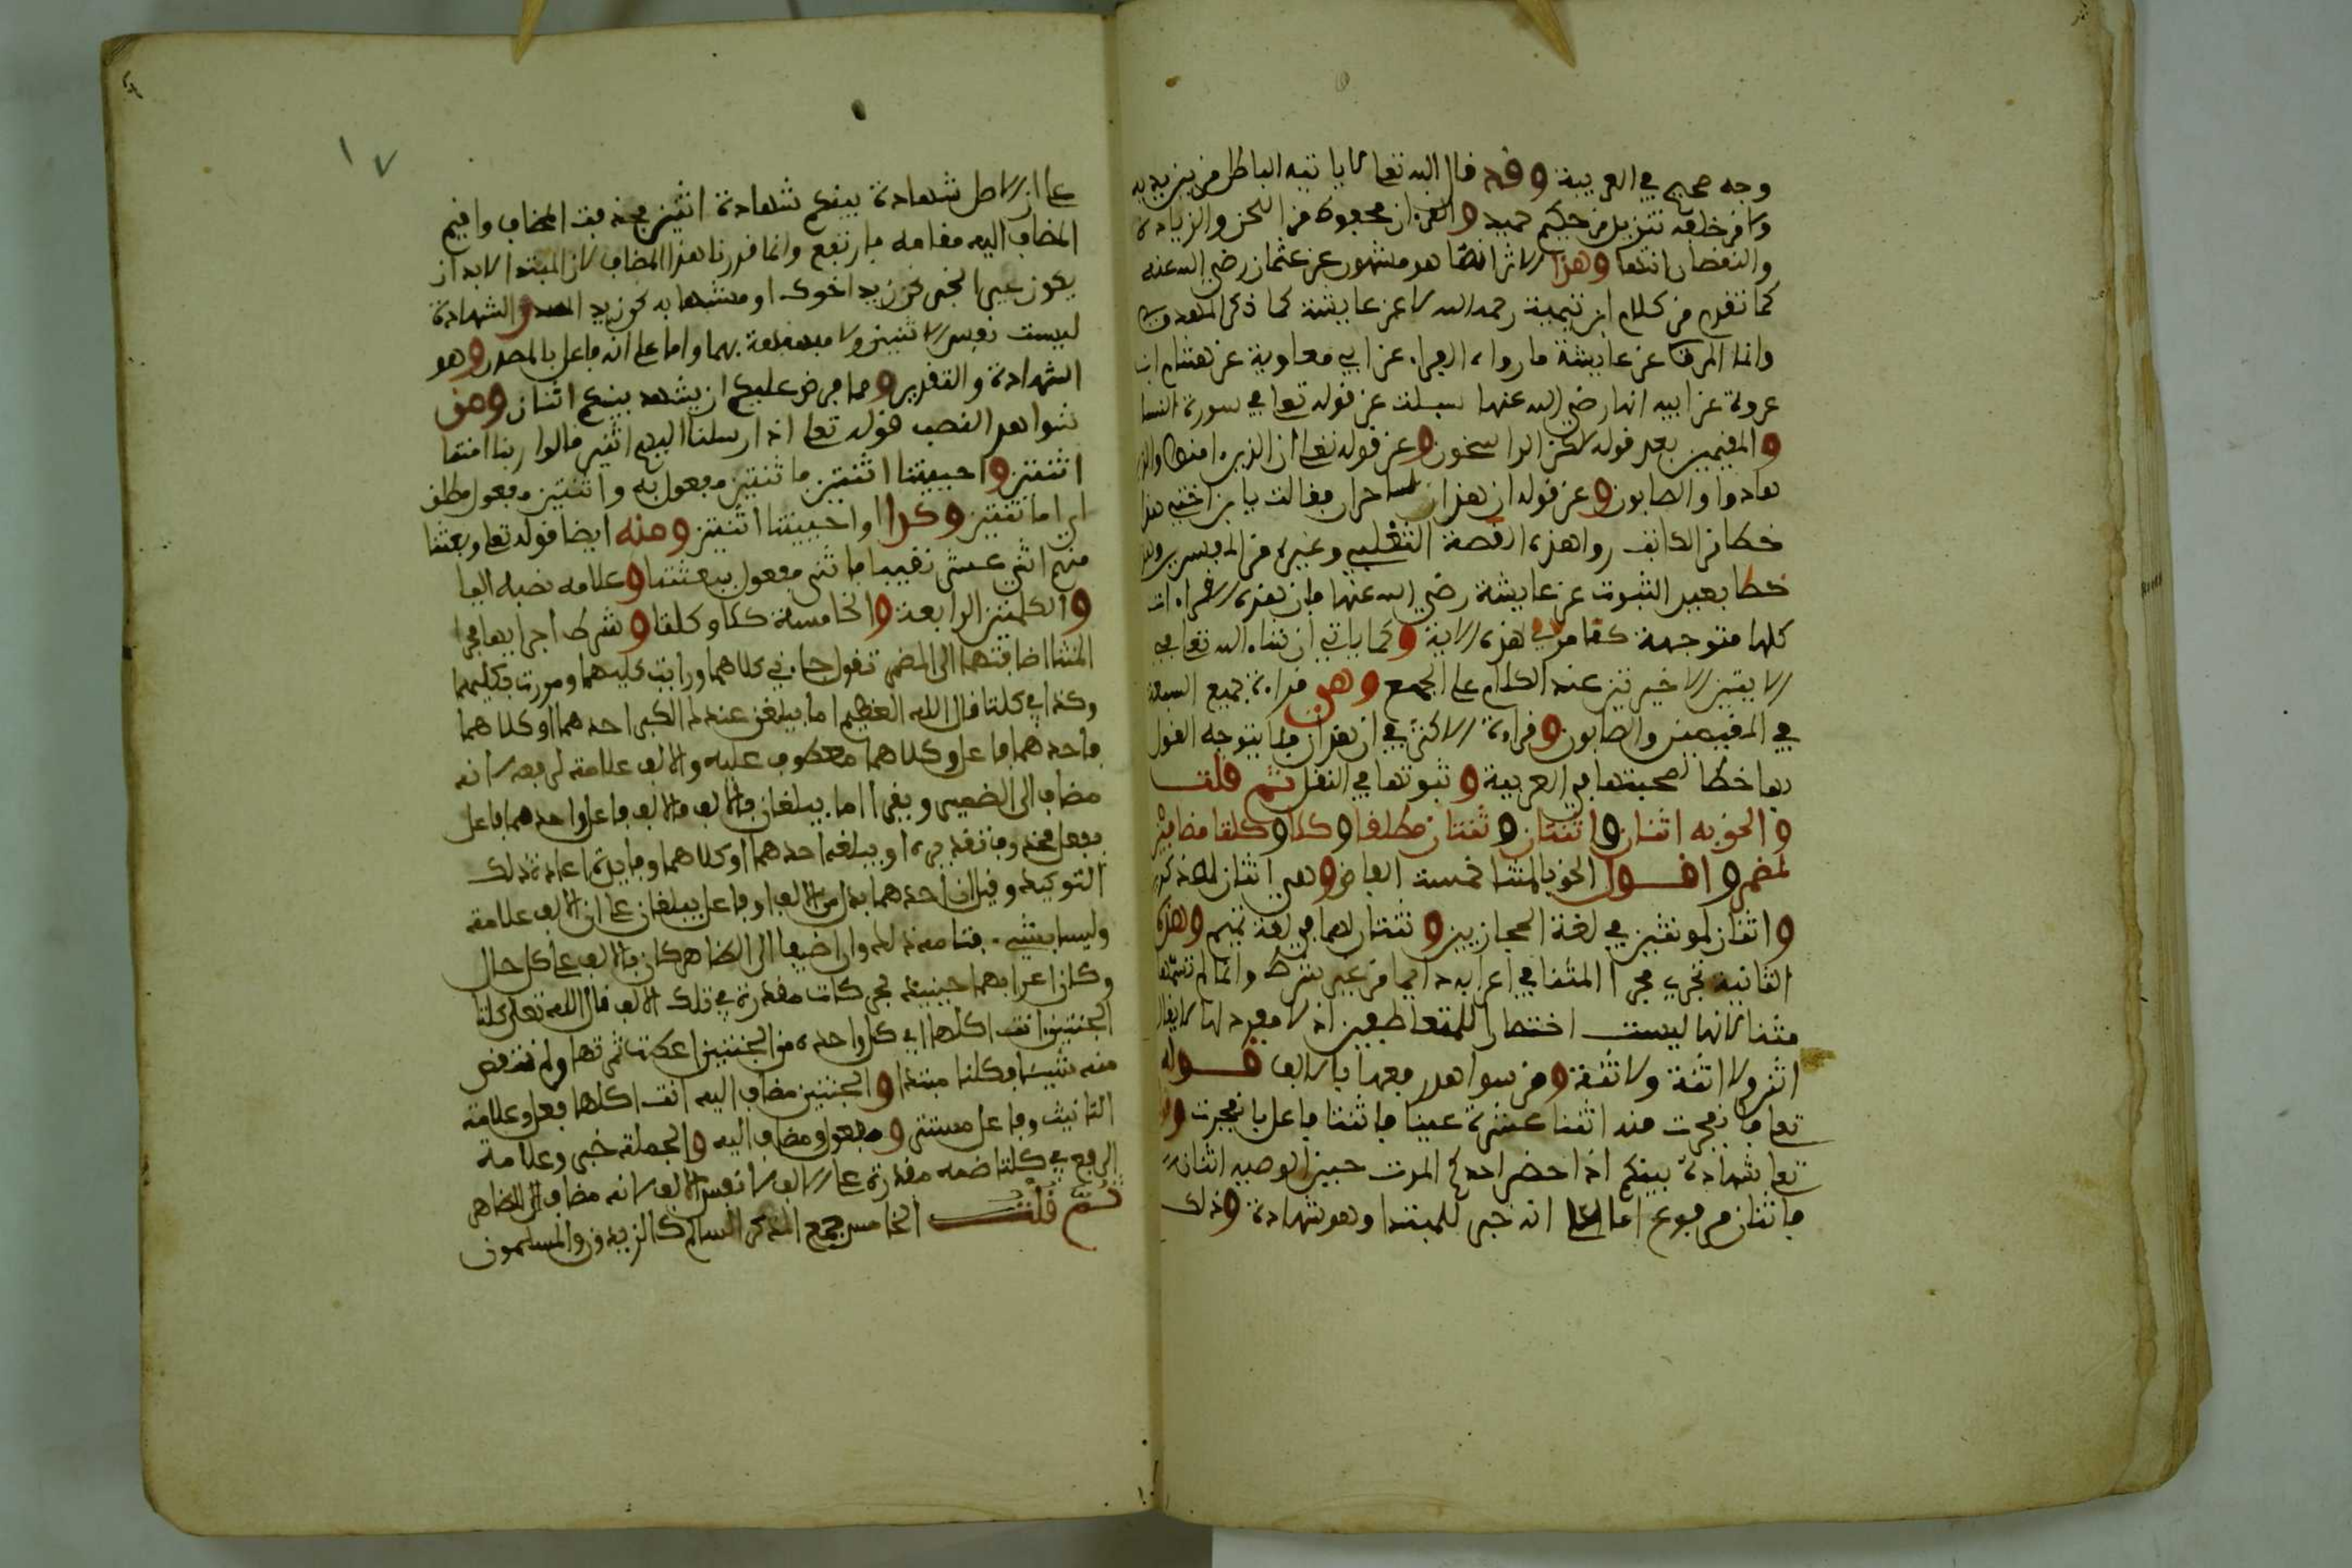 وجه صحيح في العربية وقد قال الله تعالى لا ياتيه الباطل من بين يديه
ولا من خلفه تنزيل من حكيم حميد والقرءان محفوظ من اللحن والزيادة
والنقصان انتها وهذا الاثر انما هو مشهور عن عثمان رضي الله عنه
كما تقدم من كلام ابن تيمية رحمه الله لا عن عايشة كما ذكر المهدوي
وانما المروي عن عايشة ما رواه الفراء عن ابي معاوية عن هشام ابن
عروة عن ابيه انها رضي الله عنها سيلت عن قوله تعلى في سورة النسا
والمقيمين بعد قوله لكن الراسخون وعن قوله تعلى ان الذين امنوا والذين
هادوا والصابون وعن قوله ان هذان لساحران فقالت يا بن اختي هذا
خطا من الكاتب روا هذه القصة الثعلبي وغيره من المفسرين وهذا
خطا بعيد الثبوت عن عايشة رضي الله عنها فان هذه القراءات
كلها متوجهة كما مر في هذه الاية وكما ياتي ان شاء الله تعلى في
الايتين الاخيرتين عند الكلام على الجمع وهي قراءة جميع السبعة
في المقيمين والصابون وقراءة الاكثر في ان هذان فلا يتوجه القول
بها خطا لصحبتها في العربية وثبوتها في النقل ثم قلت
والحق به اثنان واثنتان وثنتان مطلقا وكلا وكلتا مضافين
لمضمر واقول الحق بالمثنا خمسة الفاظ وهي اثنان لمذكرين
واثنتان لمونثين في لغة الحجازيين وثنتان لهما في لغة تميم وهذه
الثانية تجري مجرا المثنا في اعرابه دايما من غير شرط وانما لم نسمها
مثنا لانها ليست اختصارا للمتعاطفين اذ لا مفرد لها لا يقال
اثن ولا اثنة ولا ثنة ومن شواهد رفعها بالالف قوله
تعلى فانفجرت منه اثنتا عشرة عينا فاثنتا فاعل بانفجرت وقوله
تعلى شهادة بينكم اذا حضر احدكم الموت حين الوصية اثنان
فاثنان مرفوع اما على انه خبر للمبتدا وهو شهادة وذلك
١٧
على ان الاصل شهادة بينكم شهادة اثنين فحذف المضاف واقيم
المضاف اليه مقامه فارتفع وانما قدرنا هذا المضاف لان المبتدا لا بد ان
يكون عين الخبر نحو زيد اخوك او مشبها به نحو زيد اسد والشهادة
ليست نفس الاثنين ولا مشبهة بهما واما على انه فاعل بالمصدر وهو
الشهادة والتقدير ومما فرض عليكم ان يشهد بينكم اثنان ومن
شواهد النصب قوله تعلى اذ ارسلنا اليهم اثنين قالوا ربنا امتنا
اثنتين واحييتنا اثنتين فاثنتين مفعول به واثنتين مفعول مطلق
اي اماتتين وكذا واحييتنا اثنتين ومنه ايضا قوله تعلى وبعثنا
منهم اثني عشر نقيبا فاثني مفعول ببعثنا وعلامه نصبه اليا
والكلمتين الرابعة والخامسة كلا وكلتا وشرط اجرايهما مجرا
المثنا اضافتهما الى المضمر تقول جاءني كلاهما ورايت كليهما ومررت بكليهما
وكذا في كلتا قال الله العظيم اما يبلغن عندك الكبر احدهما او كلاهما
فاحدهما فاعل وكلاهما معطوف عليه والالف علامة لرفعه لانه
مضاف الى الضمير ويقرا اما يبلغان فالالف فاعل واحدهما فاعل
بفعل محذوف تقديره او يبلغه احدهما او كلاهما وفايدة اعادة ذلك
التوكيد وقيل ان احدهما بدل من الالف او فاعل يبلغان على ان الالف علامة
وليسا بشيء فتامل ذلك وان اضيفا الى الظاهر كان بالالف على كل حال
وكان اعرابهما حينيذ بحركات مقدرة في تلك الالف قال الله تعلى كلتا
الجنتين اتت اكلها اي كل واحدة من الجنتين اعطت ثمرتها ولم تنقص
منه شيئا فكلتا مبتدا والجنتين مضاف اليه اتت اكلها فعل وعلامة
التانيث وفاعل مستتر ومفعول ومضاف اليه والجملة خبر وعلامة
الرفع في كلتا ضمه مقدرة على الالف لا نفس الالف لانه مضاف الى الظاهر
ثم قلت الخامس جمع المذكر السالم كالزيدون والمسلمون